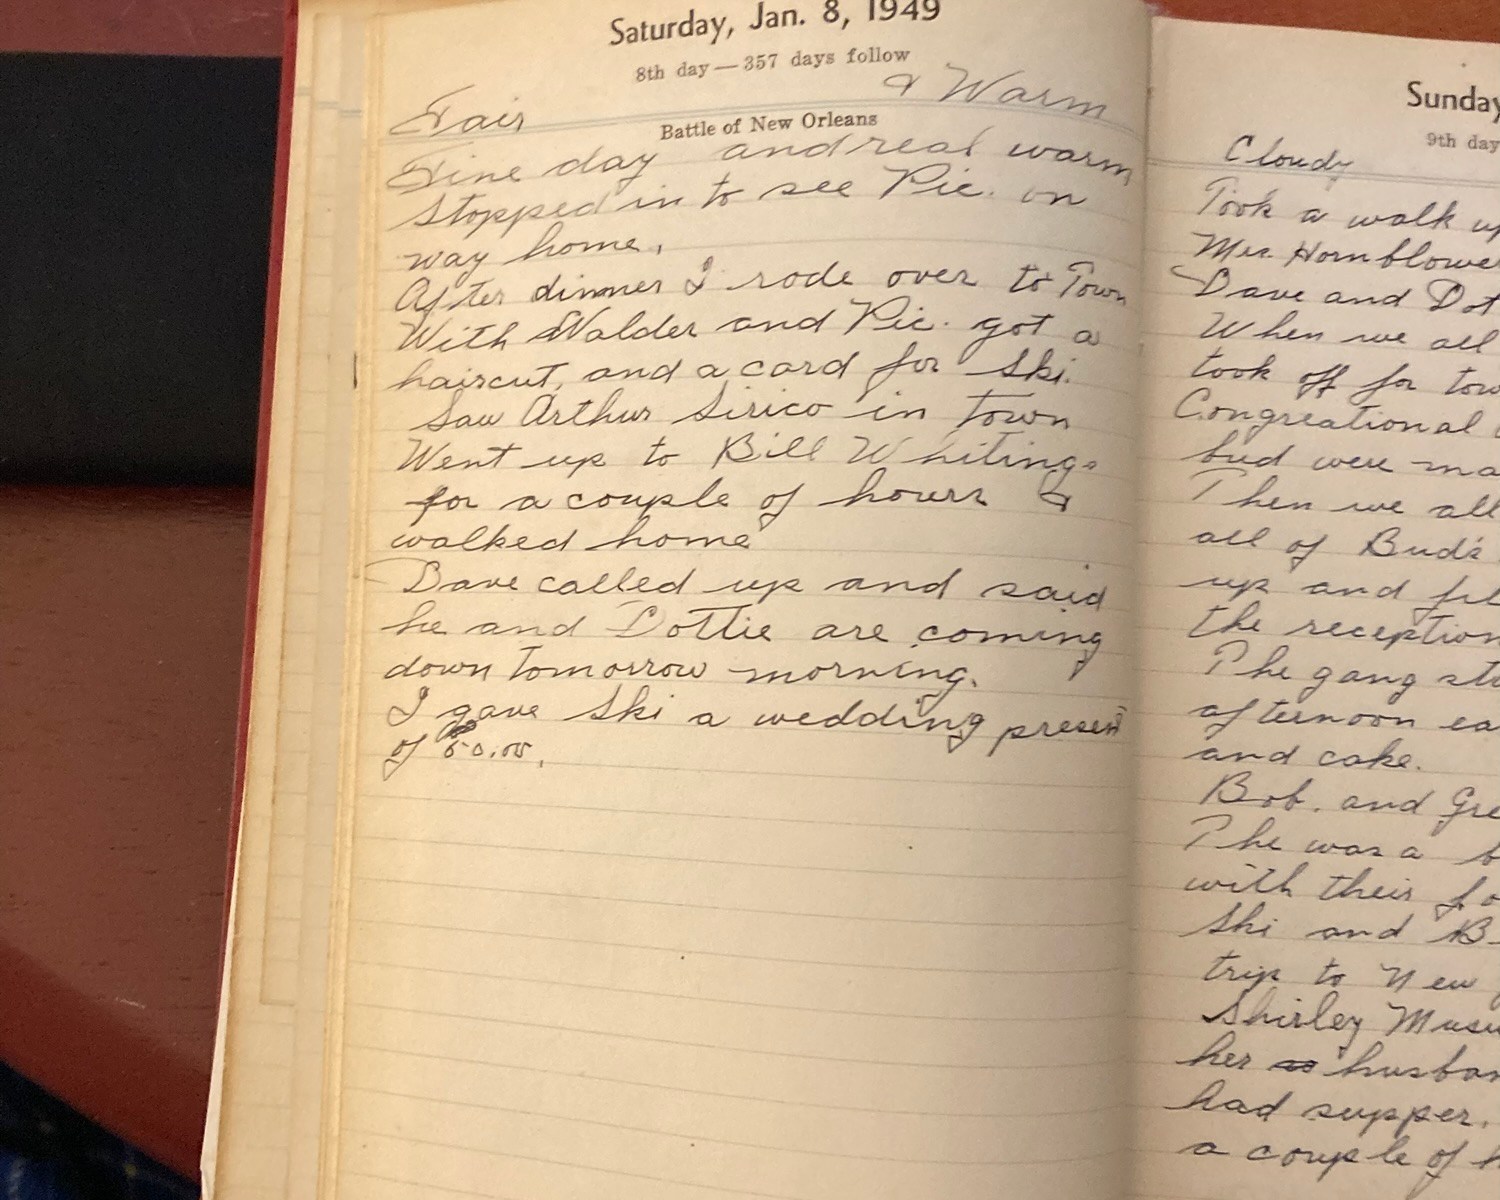 Saturday, Jan. 8, 1949
8th day — 357 days follow
Fair & Warm
Battle of New Orleans
Fine day and real warm
Stopped in to see Pic. on
way home.
After dinner I rode over to Town
With Walder and Pic. got a
haircut, and a card for Ski.
Saw Arthur Sirico in town
Went up to Bill Whitings
for a couple of hours &
walked home
Dave called up and said
he and Dottie are coming
down tomorrow morning.
I gave Ski a wedding present
of 50.00.
Sunday
9th day
Cloudy
Took a walk up
Mrs. Hornblower
Dave and Dot
When we all
took off for tow
Congreational
bud were ma
Then we all
all of Bud's
up and
the reception
The gang sta
afternoon ea
and cake.
Bob. and Gre
The was a b
with their fo
Ski and B
trip to New
Shirley Musu
her husban
had supper.
a couple of h